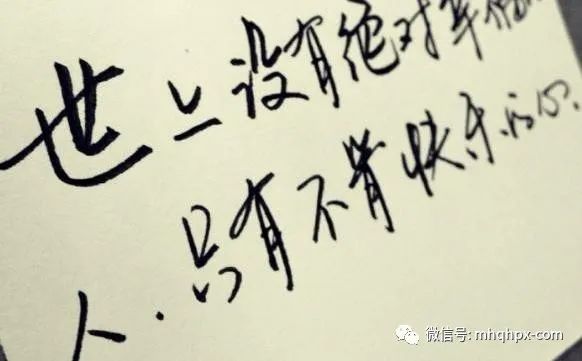 世上没有绝对幸福
人.只有不肯快乐的心.
微信号: mhqhpx-com